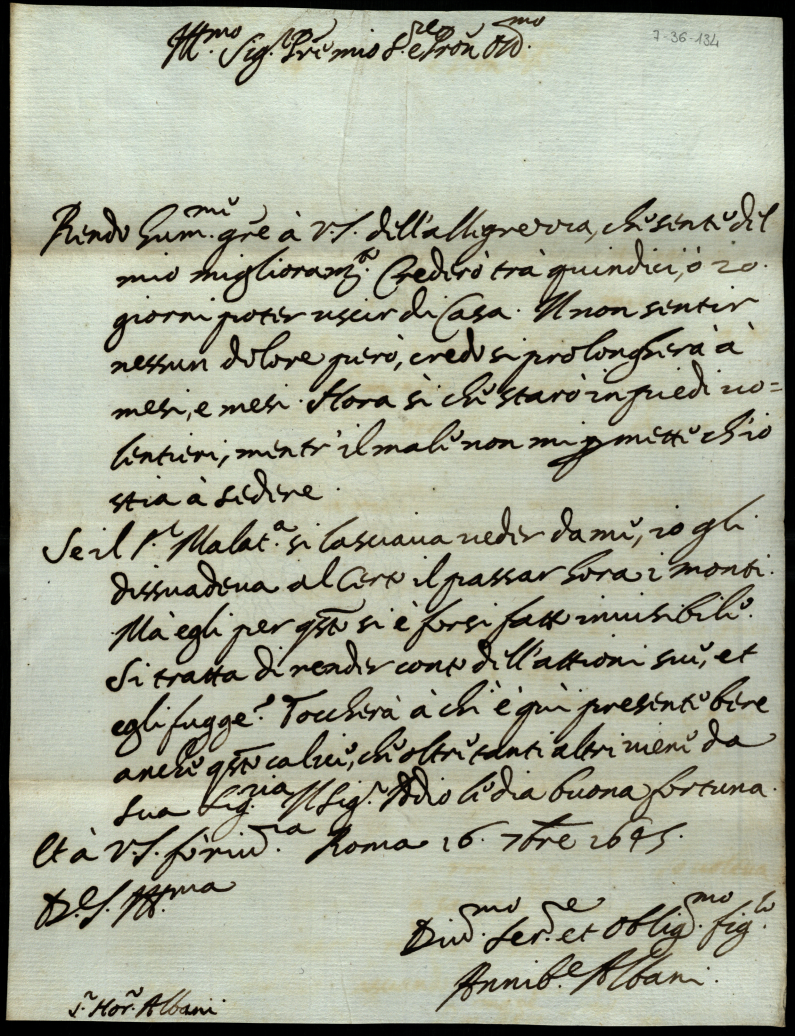 7-36-134
Ill.mo Sig.r P.re mio S.re e Pron Col.mo
Rendo hum.me gre à V.S. dell'allegrezza, che sente del
mio miglioram.to Crederò trà quindici, ò 20
giorni poter uscir di Casa. Il non sentir
nessun dolore però, credo si prolongherà à
mesi, e mesi. Hora sì che starò in piedi uo=
lentieri, mentr'il male non mi pmette ch'io
stia à sedere.
Se il P.e Malat.a si lasciaua ueder da me, io gli
dissuadeua al Certo il passar hora i monti.
Mà egli per qsto si è forsi fatto inuisibile.
Si tratta di render conto dell'attioni sue, et
egli fugge? Toccherà à chi è quì presente bere
anche qsto calice, che oltre tanti altri uiene da
sua Sig.ria Il Sig.r Iddio le dia buona fortuna.
Et à V.S. fò riu.za Roma 16. 7bre 1645.
D.e S. Ill.ma
Diu.mo Ser.e et Oblig.mo fig.lo
Annib.e Albani.
S.r Hor.o Albani